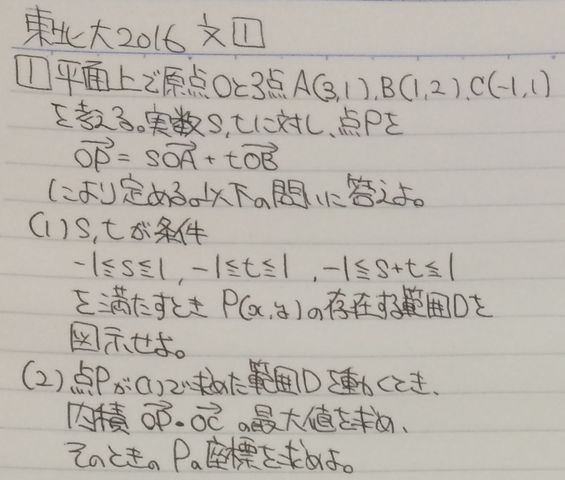 東北大2016 文①
① 平面上で原点Oと3点A(3,1),B(1,2),C(-1,1)
を考える。実数s,tに対し、点Pを
OP→ = sOA→ + tOB→
により定める。以下の問いに答えよ。
(1) s,tが条件
-1≦s≦1, -1≦t≦1, -1≦s+t≦1
を満たすとき P(x,y)の存在する範囲Dを
図示せよ。
(2) 点Pが(1)で求めた範囲Dを動くとき、
内積 OP→・OC→ の最大値を求め、
そのときのPの座標を求めよ。